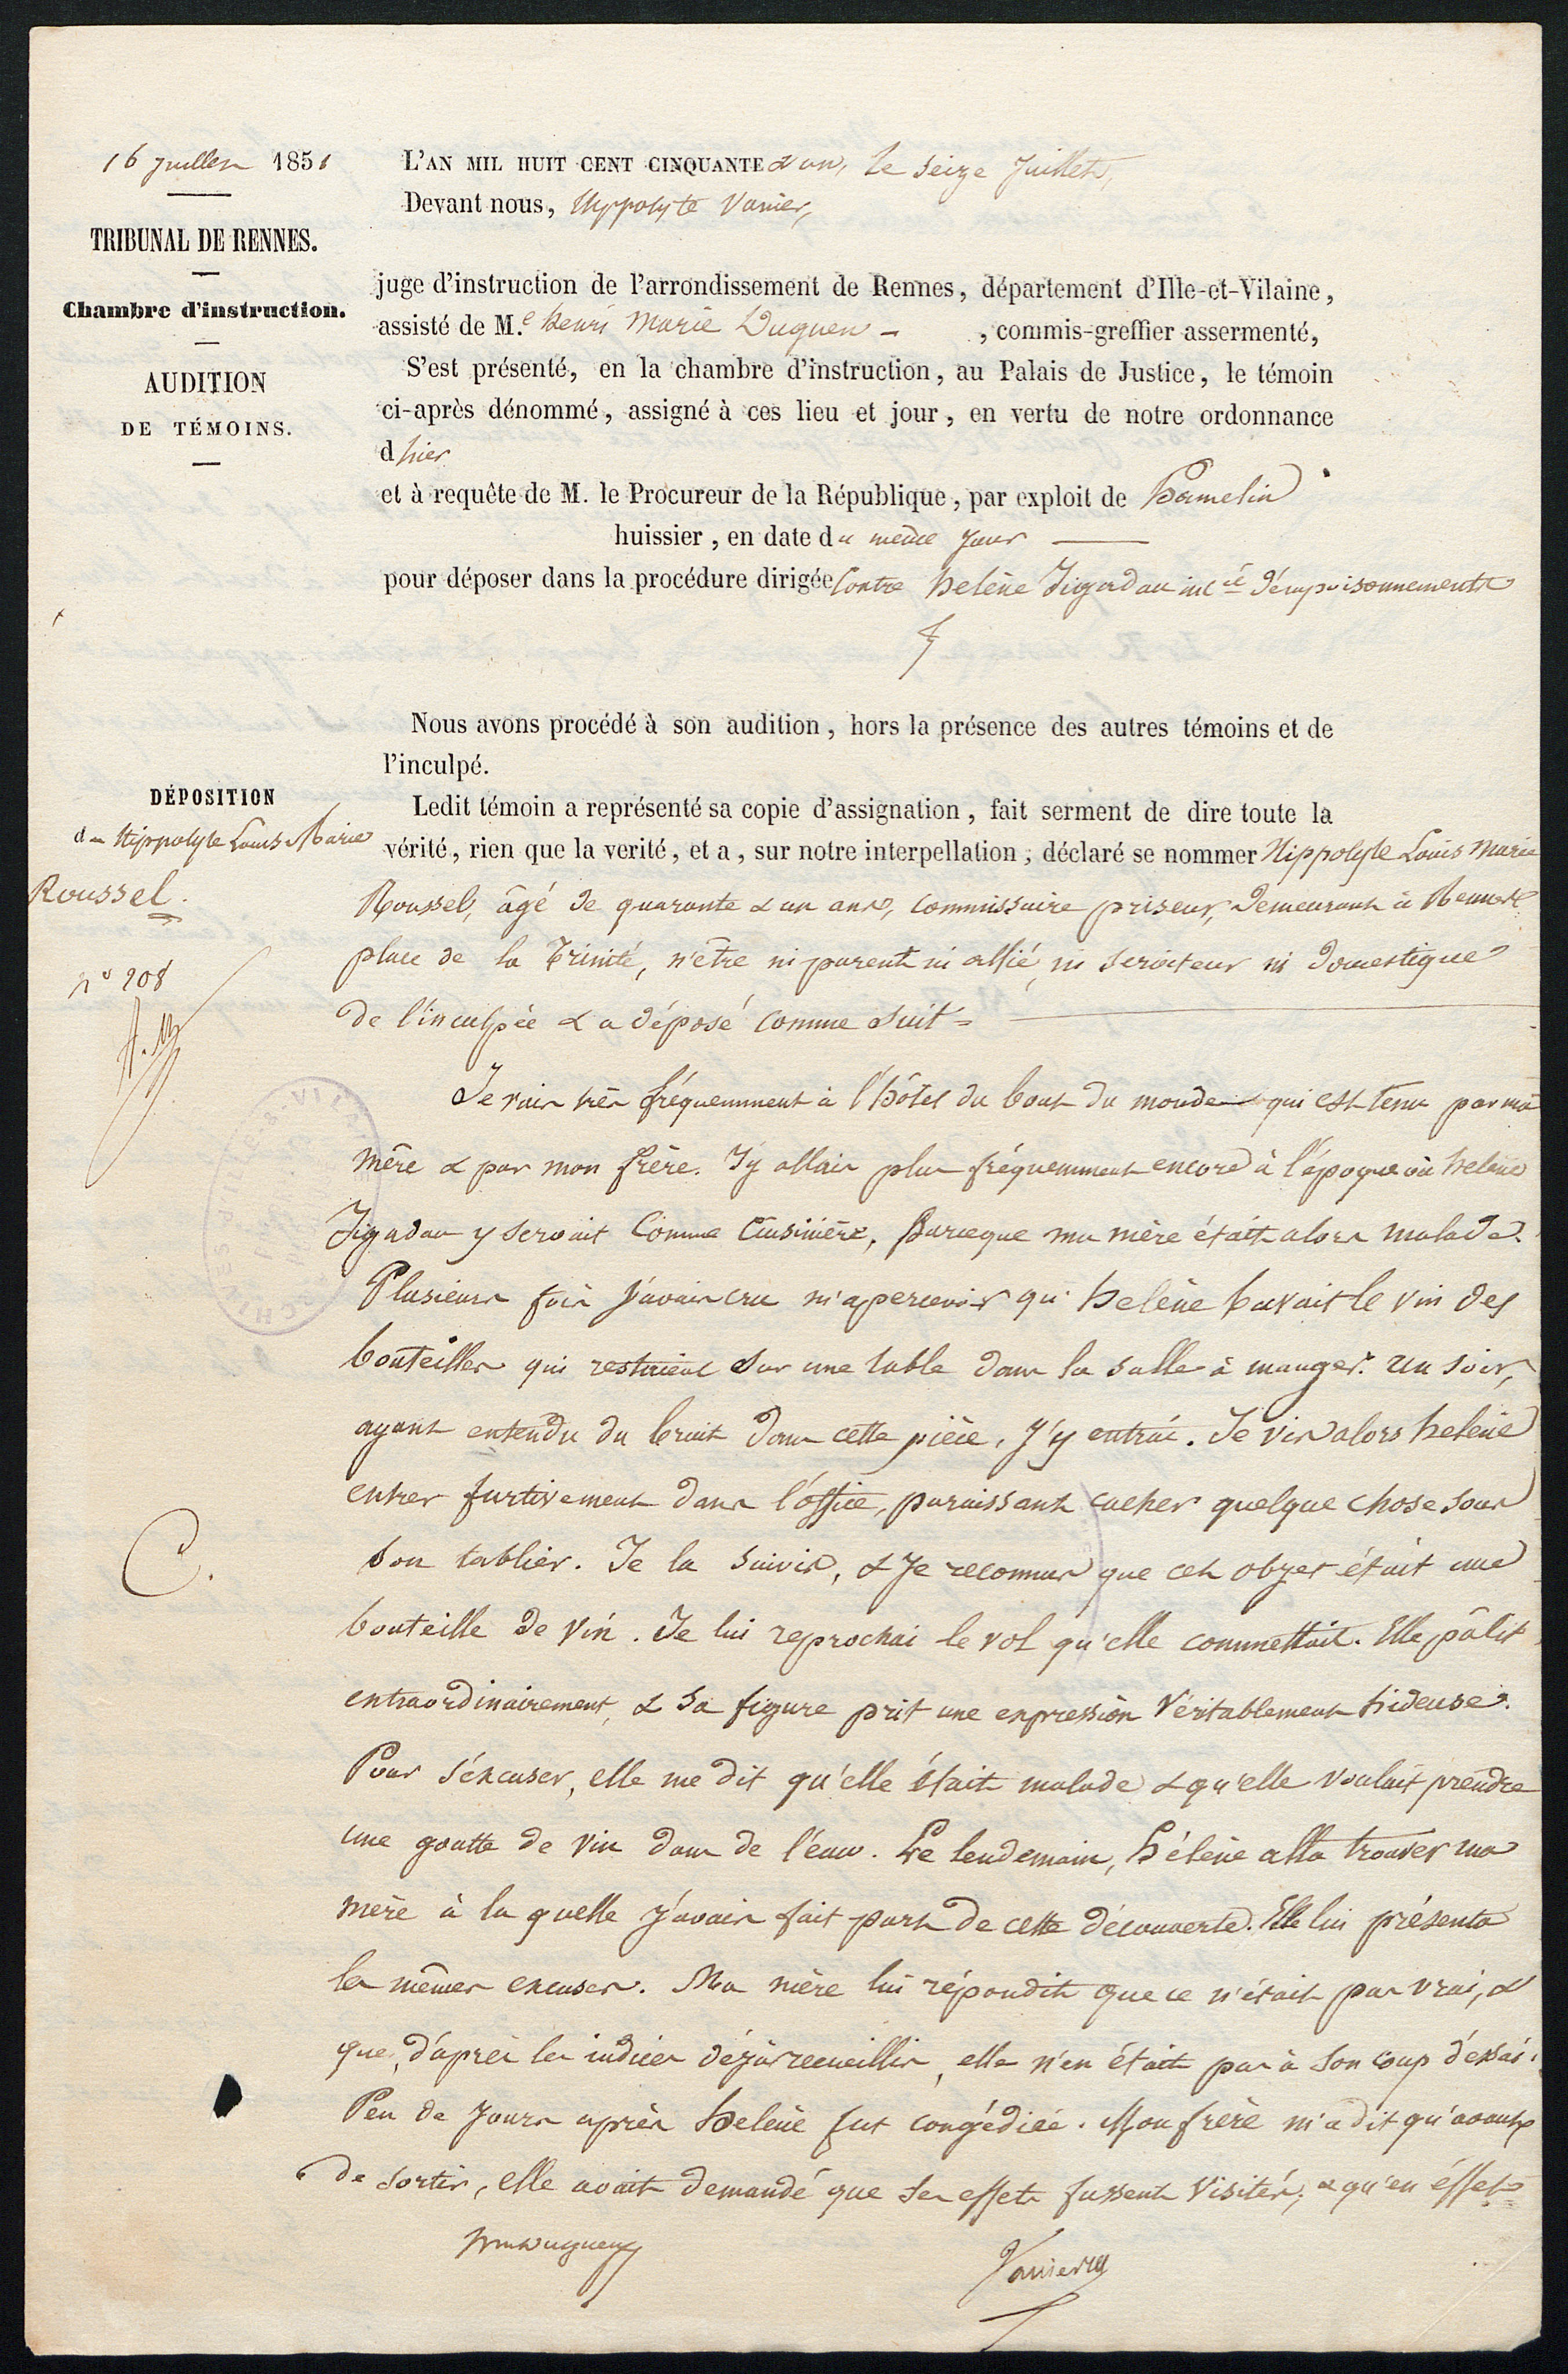 16 juillet 1851
TRIBUNAL DE RENNES.
Chambre d'instruction.
AUDITION
DE TÉMOINS.
L'AN MIL HUIT CENT CINQUANTE & un, le seize juillet,
Devant nous, Hyppolyte Vanier,
juge d'instruction de l'arrondissement de Rennes, département d'Ille-et-Vilaine,
assisté de M.e henri Marie Duguen – , commis-greffier assermenté,
S'est présenté, en la chambre d'instruction, au Palais de Justice, le témoin
ci-après dénommé, assigné à ces lieu et jour, en vertu de notre ordonnance
d'hier
et à requête de M. le Procureur de la République, par exploit de hamelin
huissier, en date du même jour
pour déposer dans la procédure dirigée contre helène Jégadau inc.ée d'empoisonnements
Nous avons procédé à son audition, hors la présence des autres témoins et de
l'inculpé.
DÉPOSITION
du Hippolyte Louis Marie
Roussel.
n° 208
Ledit témoin a représenté sa copie d'assignation, fait serment de dire toute la
vérité, rien que la verité, et a, sur notre interpellation, déclaré se nommer Hippolyte Louis Marie
Roussel, âgé de quarante & un ans, commissaire priseur, demeurant à Rennes
place de la Trinité, n'être ni parent ni allié, ni serviteur ni domestique
de l'inculpée & a déposé comme suit =
Je vais très fréquemment à l'hôtel du bout du monde qui est tenu par ma
mère & par mon frère. J'y allais plus fréquemment encore à l'époque où helène
Jégadau y servait comme cuisinière, parceque ma mère était alors malade.
Plusieurs fois j'avais cru m'apercevoir qu' helène buvait le vin des
bouteilles qui restaient sur une table dans la salle à manger. un soir,
ayant entendu du bruit dans cette pièce, j'y entrai. Je vis alors helène
entrer furtivement dans l'office, paraissant cacher quelque chose sous
son tablier. Je la suivis, & je reconnus que cet objet était une
bouteille de vin. Je lui reprochai le vol qu'elle commettait. Elle pâlit
extraordinairement, & sa figure prit une expression véritablement hideuse.
Pour s'excuser, elle me dit qu'elle était malade & qu'elle voulait prendre
une goutte de vin dans de l'eau. Le lendemain, hélène alla trouver ma
mère à la quelle j'avais fait part de cette découverte. Elle lui présenta
les mêmes excuses. Ma mère lui répondit que ce n'était pas vrai, &
que, d'après les indices déjà recueillis, elle n'en était pas à son coup d'essai.
Peu de jours après helène fut congédiée. Mon frère m'a dit qu'avant
de sortir, elle avait demandé que ses effets fussent visités, & qu'en effet
C.
hm duguen
Vanier